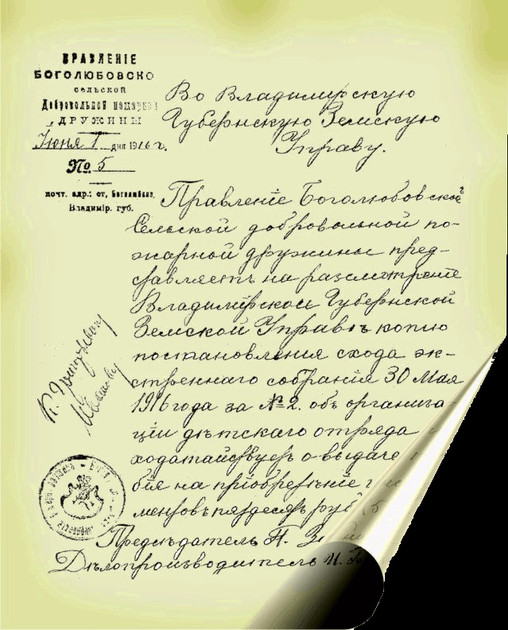 ПРАВЛЕНІЕ
БОГОЛЮБОВСКО
СЕЛЬСКОЙ
Добровольной пожарно
ДРУЖИНЫ
Июня 1 дня 1916 г.
№ 5
почт. адр.: ст. Боголюбово,
Владимір. губ.
Во Владимірскую
Губернскую Земскую
Управу.
Правленіе Боголюбовской
Сельской добровольной по-
жарной дружины пред-
ставляетъ на разсмотрѣніе
Владимірской Губернской
Земской Управѣ копію
постановленія схода эк-
стреннаго собранія 30 Мая
1916 года за № 2. объ организа-
ціи дѣтскаго отряда
ходатайствуетъ о выдаче
бія на пріобрѣтеніе
ментовъ пядесять руб
Предсѣдатель П.
Дѣлопроизводитель И.